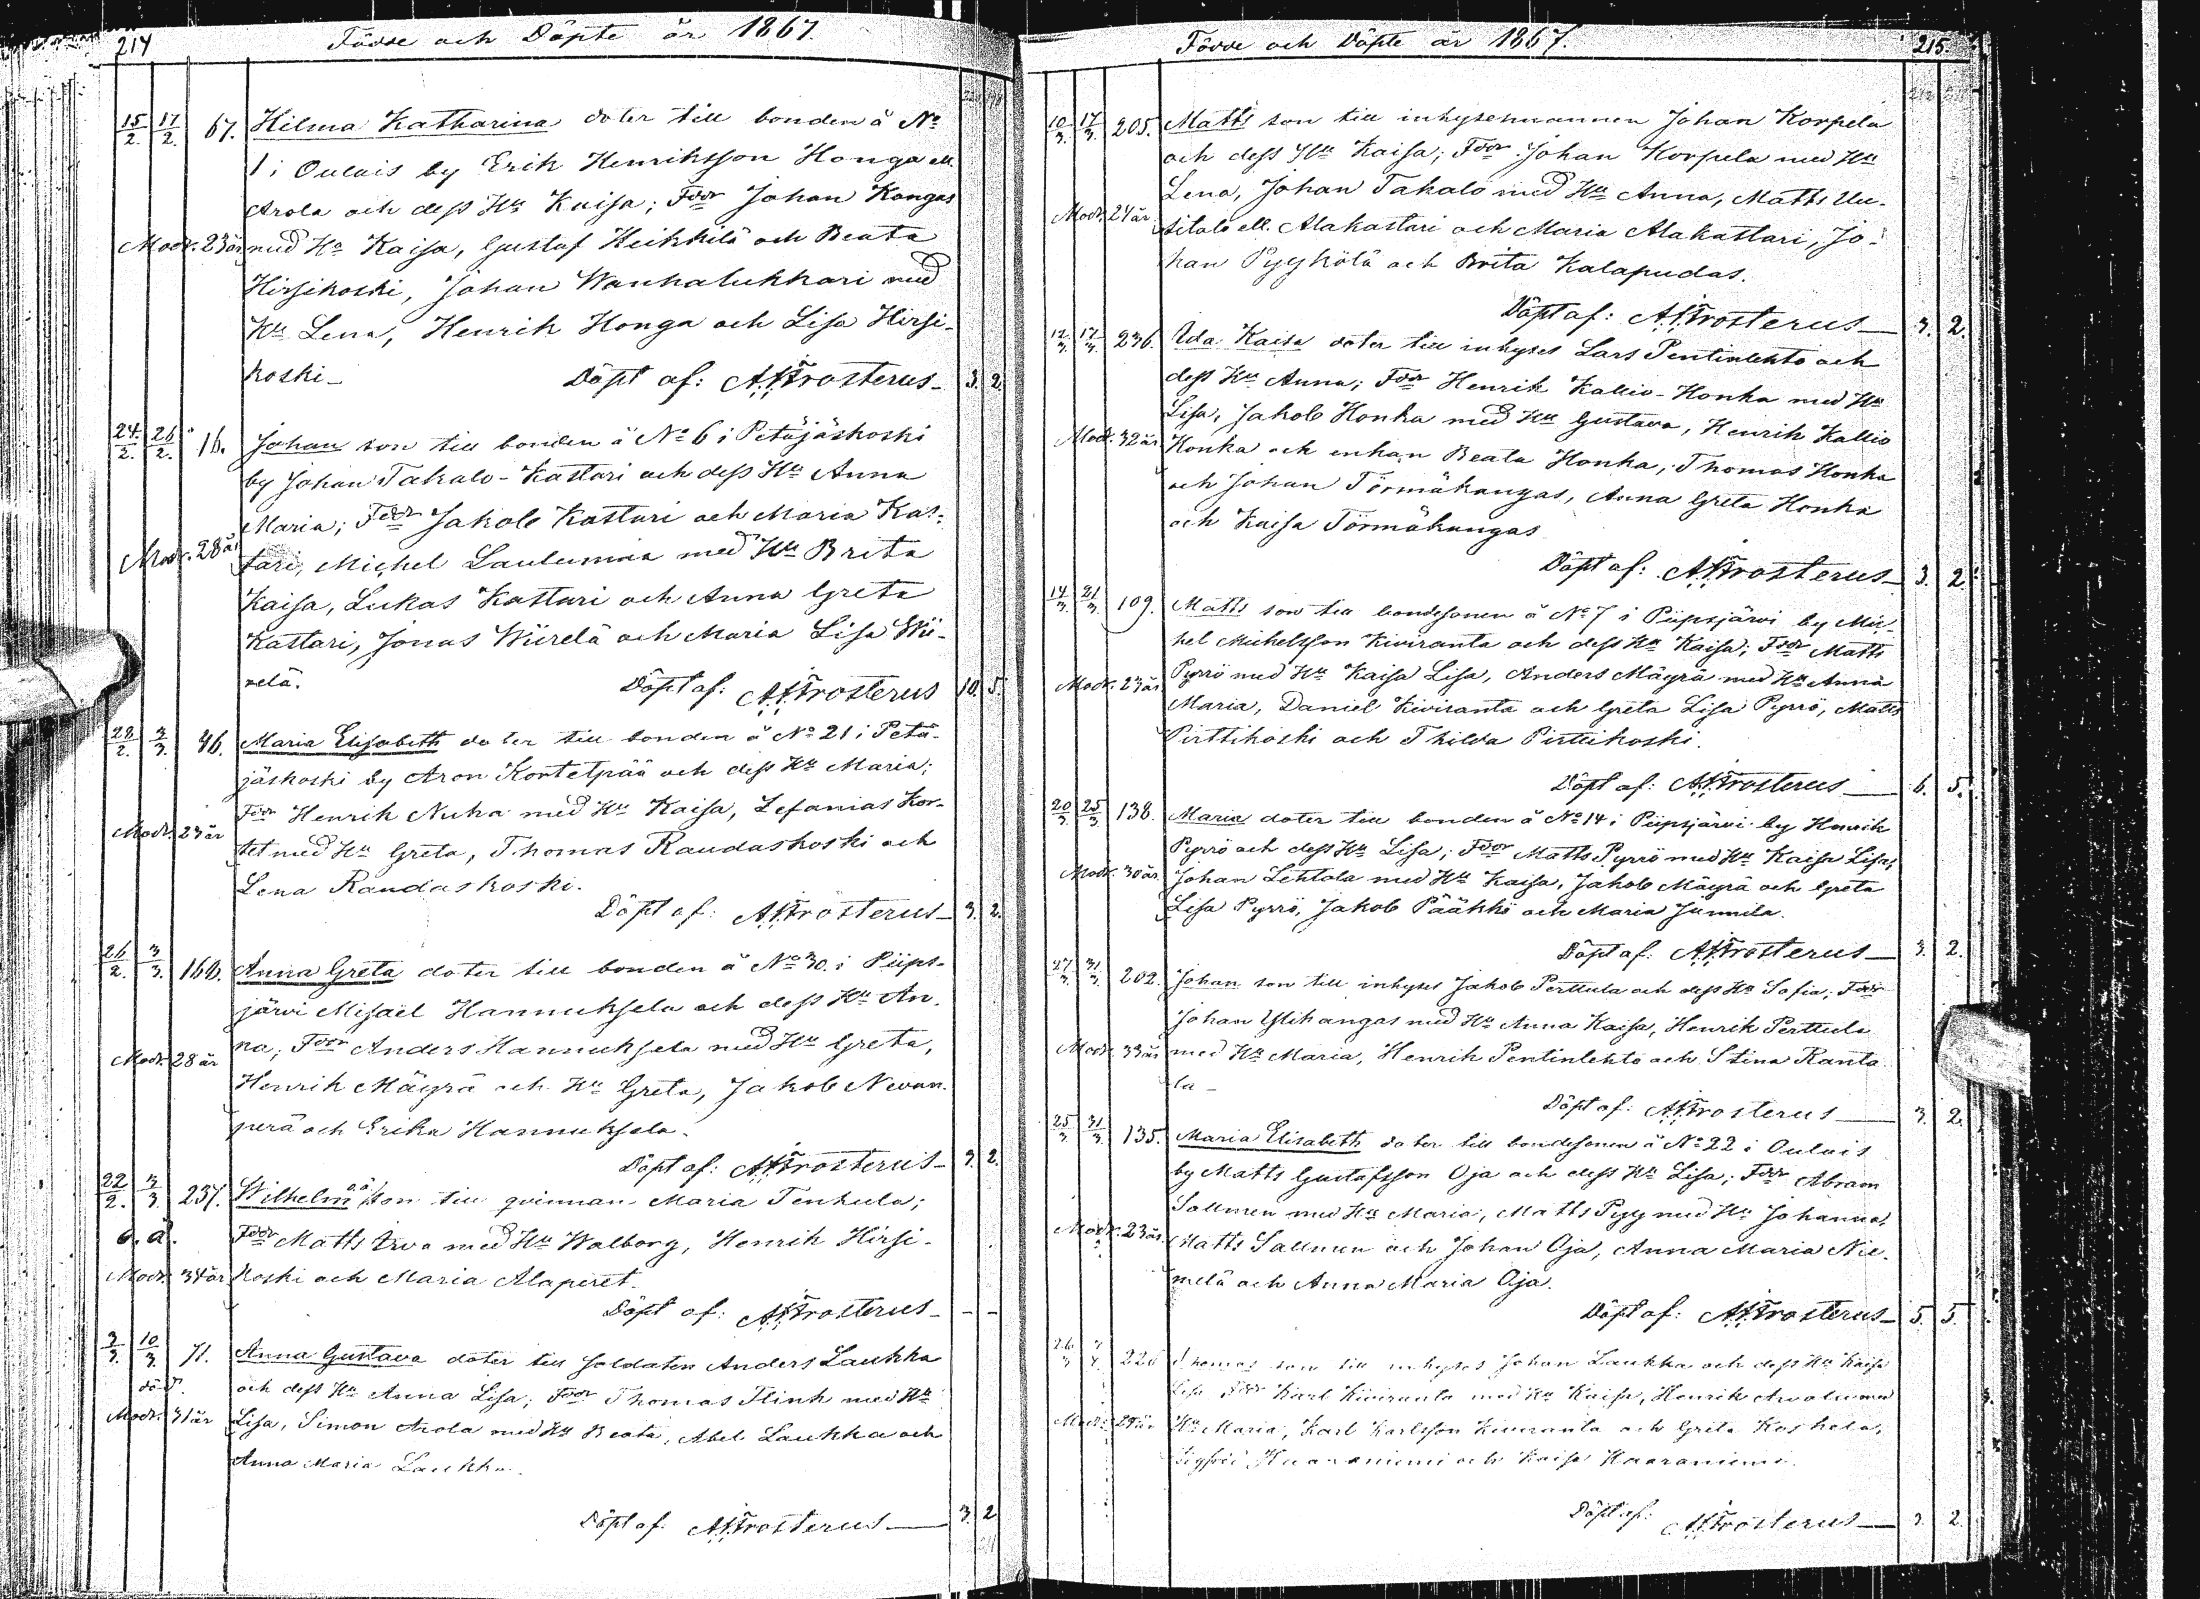 214 Födde och Döpte år 1867.
15/2 17/2 67. Hilma Katharina doter till bonden å No
1 i Oulais by Erik Henriksson Honga ell.
Arola och dess Hu Kaisa; Foor Johan Kangas
Modr. 23 år med Hu Kaisa, Gustaf Heikkilä och Beata
Hirsikoski, Johan Wanhalukkari med
Hu Lena, Henrik Honga och Lisa Hirsi-
koski – Döpt af: A. F. Frosterus – 3. 2.
24/2. 26/2. 16. Johan son till bonden å No 6 i Petäjäskoski
by Johan Takalo-Kastari och dess Hu Anna
Maria; Foor Jakob Kastari och Maria Kas-
Modr. 28 år tari, Michel Laulumaa med Hu Brita
Kaisa, Lukas Kastari och Anna Greta
Kastari, Jonas Wiirelä och Maria Lisa Wii-
relä. Döpt af: A. F. Frosterus 10. 5.
28/2. 3/3. 46. Maria Elisabeth doter till bonden å No 21 i Petä-
jäskoski by Aron Kortetpää och dess Hu Maria;
Foor Henrik Nuka med Hu Kaisa, Zefanias Kor-
Modr. 23 år tet med Hu Greta, Thomas Raudaskoski och
Lena Raudaskoski.
Döpt af: A. F. Frosterus – 3. 2.
26/2. 3/3. 160. Anna Greta doter till bonden å No 30. i Piips-
järvi Misaël Hannuksela och dess Hu An-
na; Foor Anders Hannuksela med Hu Greta,
Modr. 28 år Henrik Mäyrä och Hu Greta, Jakob Nevan-
perä och Erika Hannuksela.
Döpt af: A. F. Frosterus – 3. 2.
22/2. 3/3. 237. Wilhelm o.ä. son till qvinnan Maria Tenkula;
o. ä. Foor Matts Arva med Hu Walborg, Henrik Hirsi-
Modr. 34 år koski och Maria Alaperet.
Döpt af: A. F. Frosterus – – –
3/3. 10/3. 71. Anna Gustava doter till soldaten Anders Laukka
död. och dess Hu Anna Lisa; Foor Thomas Flink med Hu
Modr. 31 år Lisa, Simon Arola med Hu Beata, Abel Laukka och
Anna Maria Laukka.
Döpt af: A. F. Frosterus – 3. 2
Födde och Döpte år 1867. 215.
10/3. 17/3. 205. Matts son till inhysesmannen Johan Korpela
och dess Hu Kaisa; Foor Johan Korpela med Hu
Lena, Johan Takalo med Hu Anna, Matts Uu-
Modr. 24 år. sitalo ell. Alakastari och Maria Alakastari, Jo-
han Pyykölä och Brita Kalapudas.
Döpt af: A. F. Frosterus – 3. 2.
12/3. 17/3. 236. Ida Kaisa doter till inhyses Lars Pentinlehto och
dess Hu Anna; Foor Henrik Kallio-Honka med Hu
Lisa, Jakob Honka med Hu Gustava, Henrik Kallio
Modr. 32 år Honka och enkan Beata Honka, Thomas Honka
och Johan Törmäkangas, Anna Greta Honka
och Kaisa Törmäkangas
Döpt af: A. F. Frosterus – 3. 2.
14/3. 21/3. 109. Matts son till bondesonen å No 7 i Piipsjärvi by Mic-
hel Michelsson Kiviranta och dess Hu Kaisa; Foor Matts
Modr. 23 år. Pyrrö med Hu Kaisa Lisa, Anders Mäyrä med Hu Anna
Maria, Daniel Kiviranta och Greta Lisa Pyrrö, Matts
Pirttikoski och Thilda Pirttikoski.
Döpt af: A. F. Frosterus – 6. 5.
20/3. 25/3. 138. Maria doter till bonden å No 14 i Piipsjärvi by Henrik
Pyrrö och dess Hu Lisa; Foor Matts Pyrrö med Hu Kaisa Lisa,
Modr. 30 år. Johan Lehtola med Hu Kaisa, Jakob Mäyrä och Greta
Lisa Pyrrö, Jakob Pääkkö och Maria Junnila.
Döpt af. A. F. Frosterus – 3. 2.
27/3. 31/3. 202. Johan son till inhyses Jakob Perttula och dess Hu Sofia; Foor
Johan Ylikangas med Hu Anna Kaisa, Henrik Perttula
Modr. 33 år med Hu Maria, Henrik Pentinlehto och Stina Ranta-
la –
Döpt af: A. F. Frosterus – 3. 2.
25/3. 31/3. 135. Maria Elisabeth doter till bondesonen å No 22 i Oulais
by Matts Gustafsson Oja och dess Hu Lisa; Foor Abram
Sallmen med Hu Maria, Matts Pyy med Hu Johanna,
Modr. 23 år. Matts Sallmen och Johan Oja, Anna Maria Nie-
melä och Anna Maria Oja.
Döpt af: A. F. Frosterus – 5. 5.
26/3 220 Thomas son till inhyses Johan Laukka och dess Hu Kaisa
Lisa Foor Karl Kiviranta med Hu Kaisa, Henrik Arola med
Modr. 29 år Hu Maria, Karl Karlsson Kiviranta och Greta Koskela,
Sigfrid Haaraniemi och Kaisa Haaraniemi.
Döpt af: A. F. Frosterus – 3. 2.